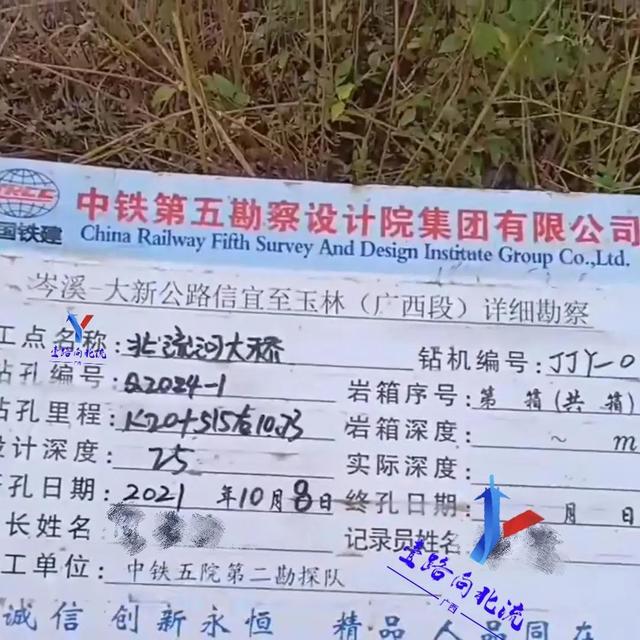 中铁第五勘察设计院集团有限公司
国铁建
China Railway Fifth Survey And Design Institute Group Co.,Ltd.
岑溪-大新公路信宜至玉林（广西段）详细勘察
工点名称：北流河大桥 钻机编号：JJY-0
钻孔编号： 岩箱序号：第 箱(共 箱)
钻孔里程：K20+515右10.33 岩箱深度： ~ m
设计深度：25 实际深度：
开孔日期：2021 年10月8日 终孔日期： 月 日
长姓名： 记录员姓名
工单位：中铁五院第二勘探队
诚信 创新永恒 精品 人品同在
壹路向北流
广西
壹路向北流
广西